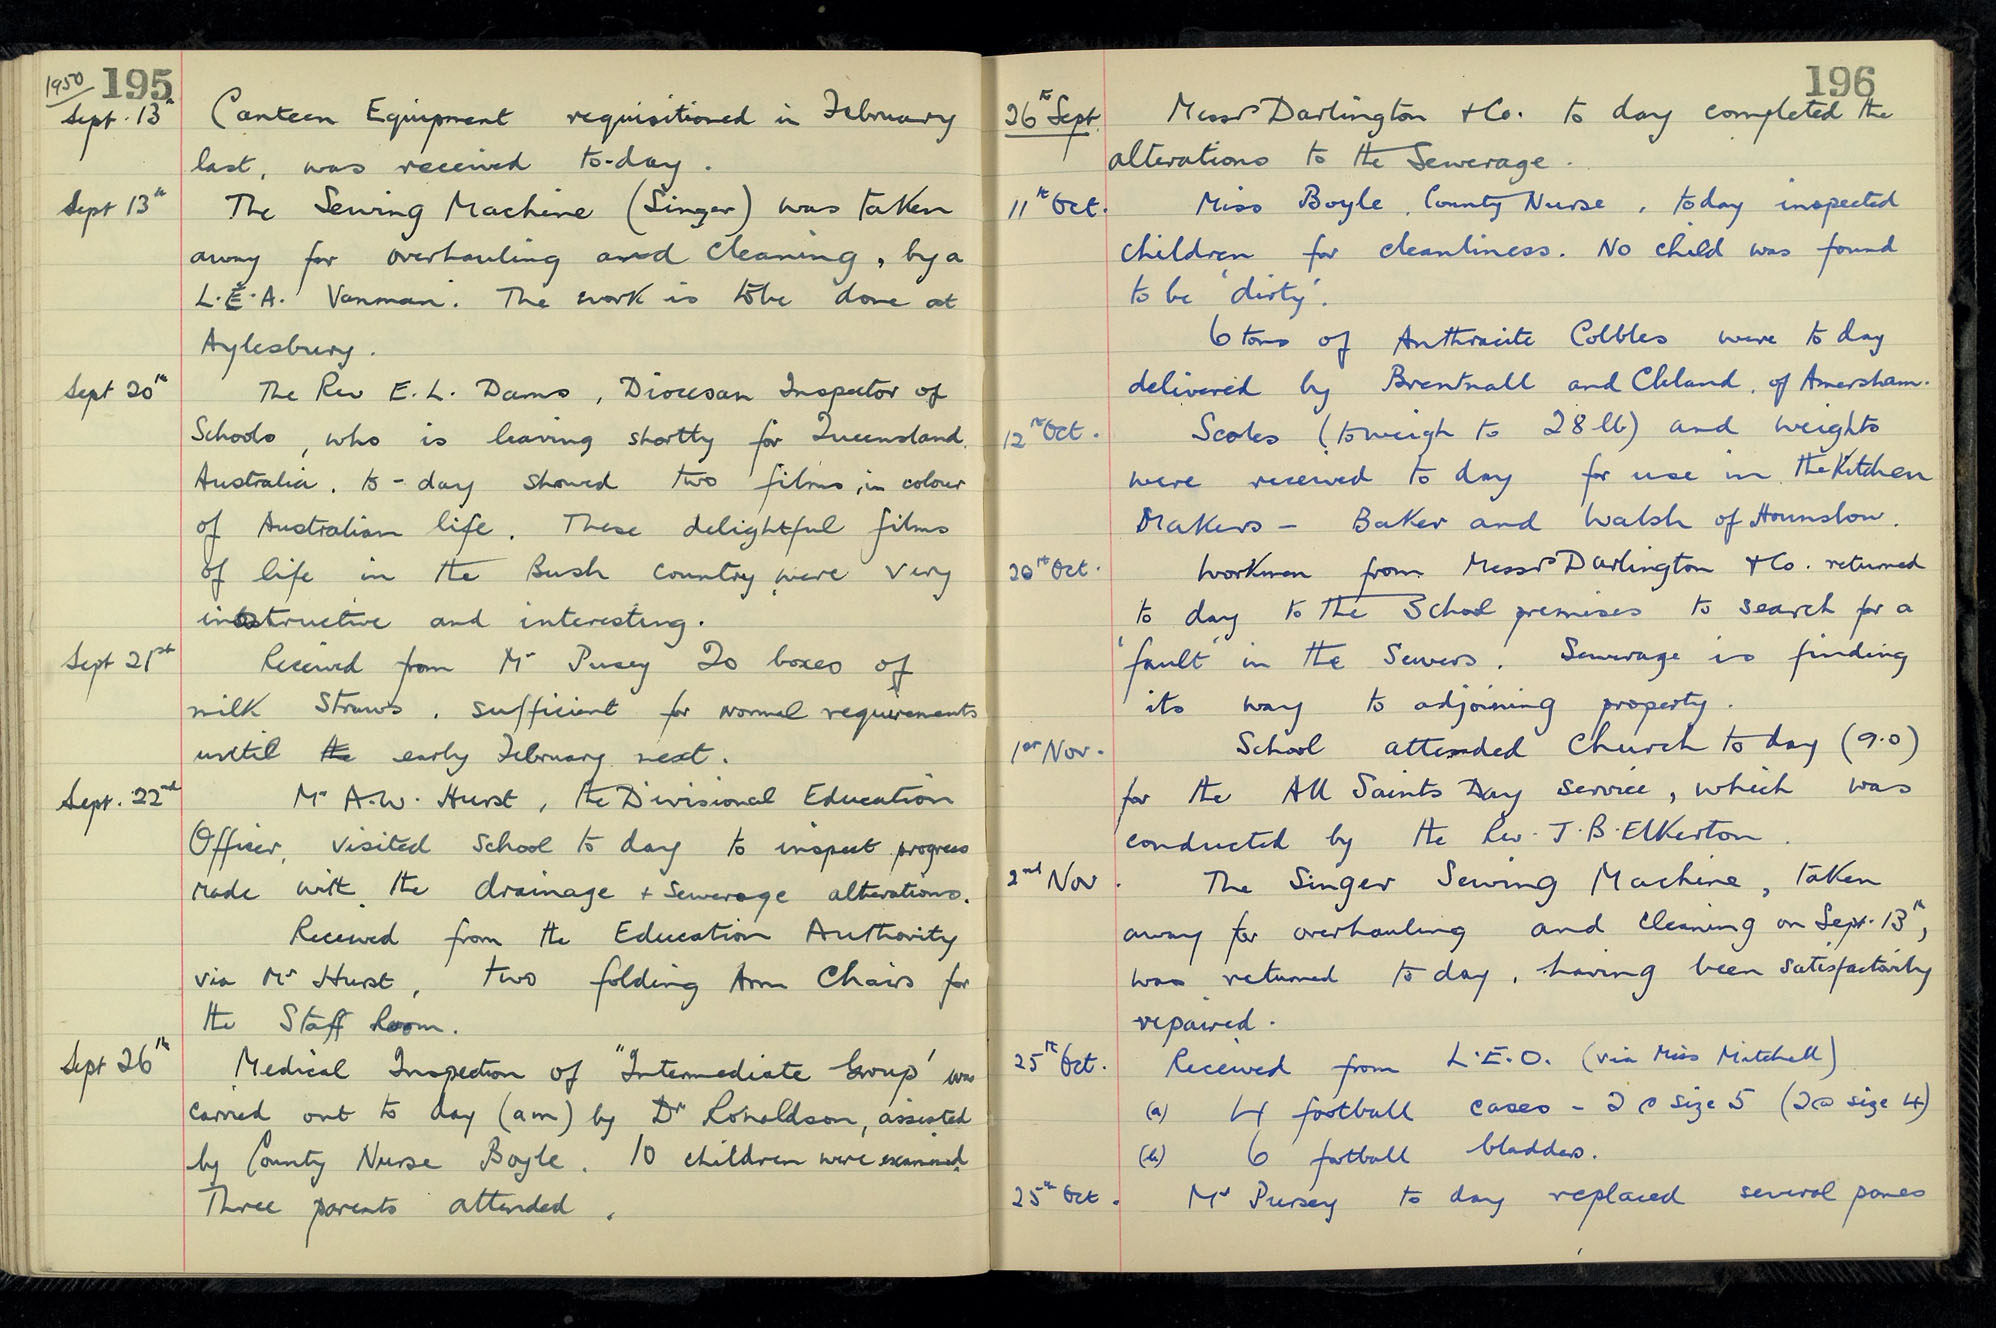 1950 195
Sept. 13th Canteen Equipment requisitioned in February
last, was received to-day.
Sept 13th The Sewing Machine (Singer) was taken
away for overhauling and cleaning, by a
L.E.A. 'Vanman'. The work is to be done at
Aylesbury.
Sept 20th The Rev E. L. Dams, Diocesan Inspector of
Schools, who is leaving shortly for Queensland,
Australia, to-day showed two films, in colour
of Australian life. These delightful films
of life in the Bush country, were very
instructive and interesting.
Sept 21st Received from Mr Pursey 20 boxes of
milk Straws, sufficient for normal requirements
until the early February next.
Sept. 22nd Mr A.W. Hurst, the Divisional Education
Officer, visited School to day to inspect progress
made with the drainage + Sewerage alterations.
Received from the Education Authority
via Mr Hurst, two folding Arm Chairs for
the Staff Room.
Sept 26th Medical Inspection of "Intermediate Group' was
carried out to day (am) by Dr Ronaldson, assisted
by County Nurse Boyle. 10 children were examined.
Three parents attended.
196
26th Sept. Messrs Darlington + Co. to day completed the
alterations to the Sewerage.
11th Oct. Miss Boyle, County Nurse, today inspected
children for cleanliness. No child was found
to be 'dirty'.
6 tons of Anthracite Cobbles were to day
delivered by Brentnall and Cleland, of Amersham.
12th Oct. Scales (to weigh to 28 lb) and weights
were received to day for use in the Kitchen
Makers - Baker and Walsh of Hounslow.
20th Oct. Workmen from Messrs Darlington + Co. returned
to day to the School premises to search for a
'fault' in the Sewers. Sewerage is finding
its way to adjoining property.
1st Nov. School attended Church to day (9.0)
for the All Saints Day service, which was
conducted by the Rev. J. B. Elkerton.
2nd Nov. The Singer Sewing Machine, taken
away for overhauling and cleaning on Sept. 13th,
was returned to day, having been satisfactorily
repaired.
25th Oct. Received from L.E.O. (via Miss Mitchell)
(a) 4 football cases - 2 @ size 5 (2 @ size 4)
(b) 6 football bladders.
25th Oct. Mr Pursey to day replaced several panes